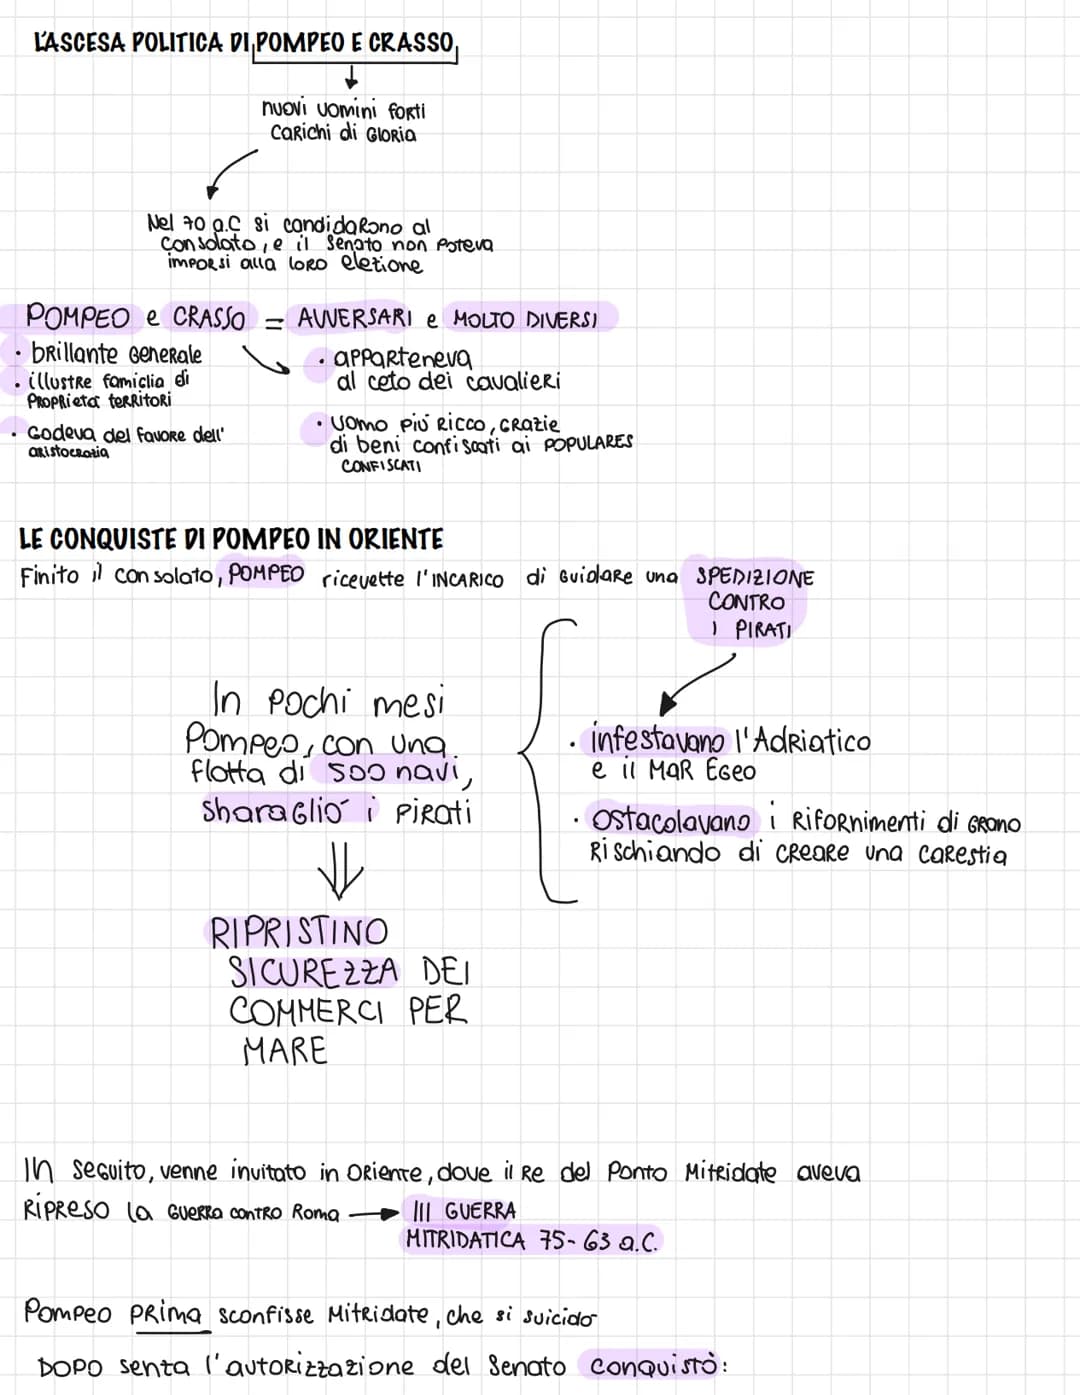 L'ASCESA POLITICA DI POMPEO E CRASSO
nuovi uomini forti
carichi di Gloria
Nel 70 a.C si candidarono al
consolato, e il Senato non poteva
imporsi alla loro elezione
POMPEO e CRASSO = AVVERSARI e MOLTO DIVERSI
• brillante Generale
• illustre famiglia di
proprietà territori
• Godeva del favore dell'
aristocrazia
• apparteneva
al ceto dei cavalieri
• Uomo più ricco, Grazie
di beni confiscati ai POPULARES
CONFISCATI
LE CONQUISTE DI POMPEO IN ORIENTE
Finito il consolato, POMPEO ricevette l'INCARICO di Guidare una SPEDIZIONE
CONTRO
I PIRATI
In pochi mesi
Pompeo, con una
flotta di 500 navi,
sbaragliò i pirati
• infestavano l'Adriatico
e il Mar Egeo
• Ostacolavano i Rifornimenti di Grano
Rischiando di creare una carestia
RIPRISTINO
SICUREZZA DEI
COMMERCI PER
MARE
In seguito, venne invitato in Oriente, dove il Re del Ponto Mitridate aveva
Ripreso la Guerra contro Roma → III GUERRA
MITRIDATICA 75-63 a.C.
Pompeo prima sconfisse Mitridate, che si suicidò
DOPO senza l'autorizzazione del Senato conquistò: